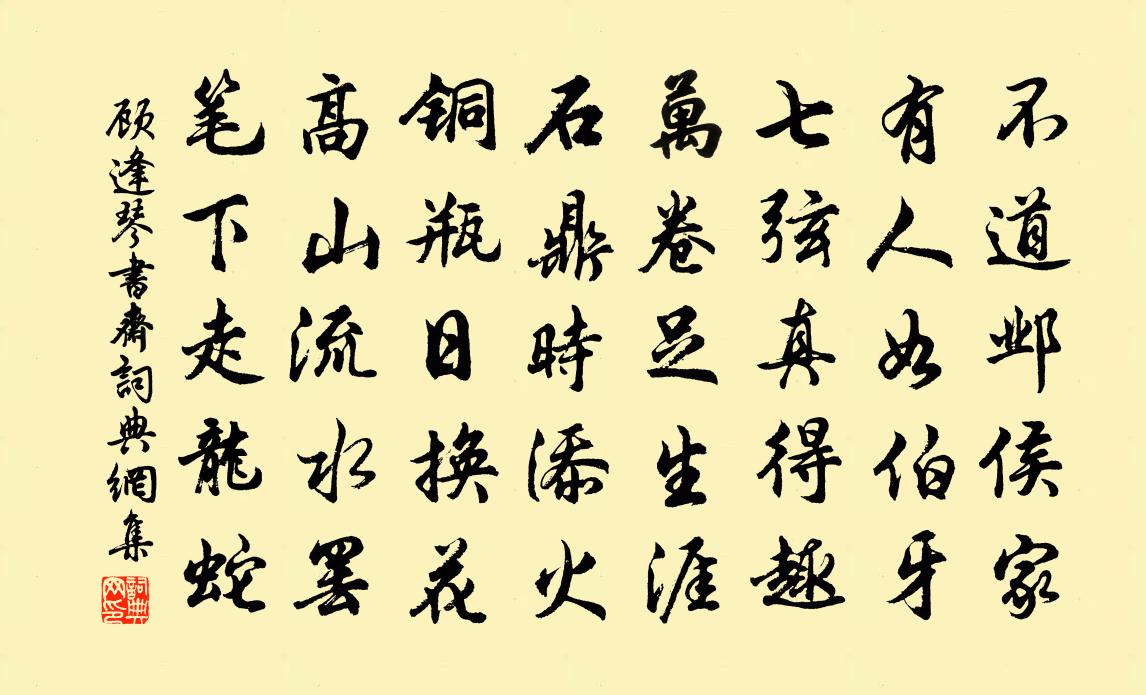 不道邺侯家
有人如伯牙
七弦真得趣
萬卷足生涯
石鼎時添火
铜瓶日换花
高山流水罢
笔下走龍蛇
顾逢琴書齋詞典網集
詞典网印